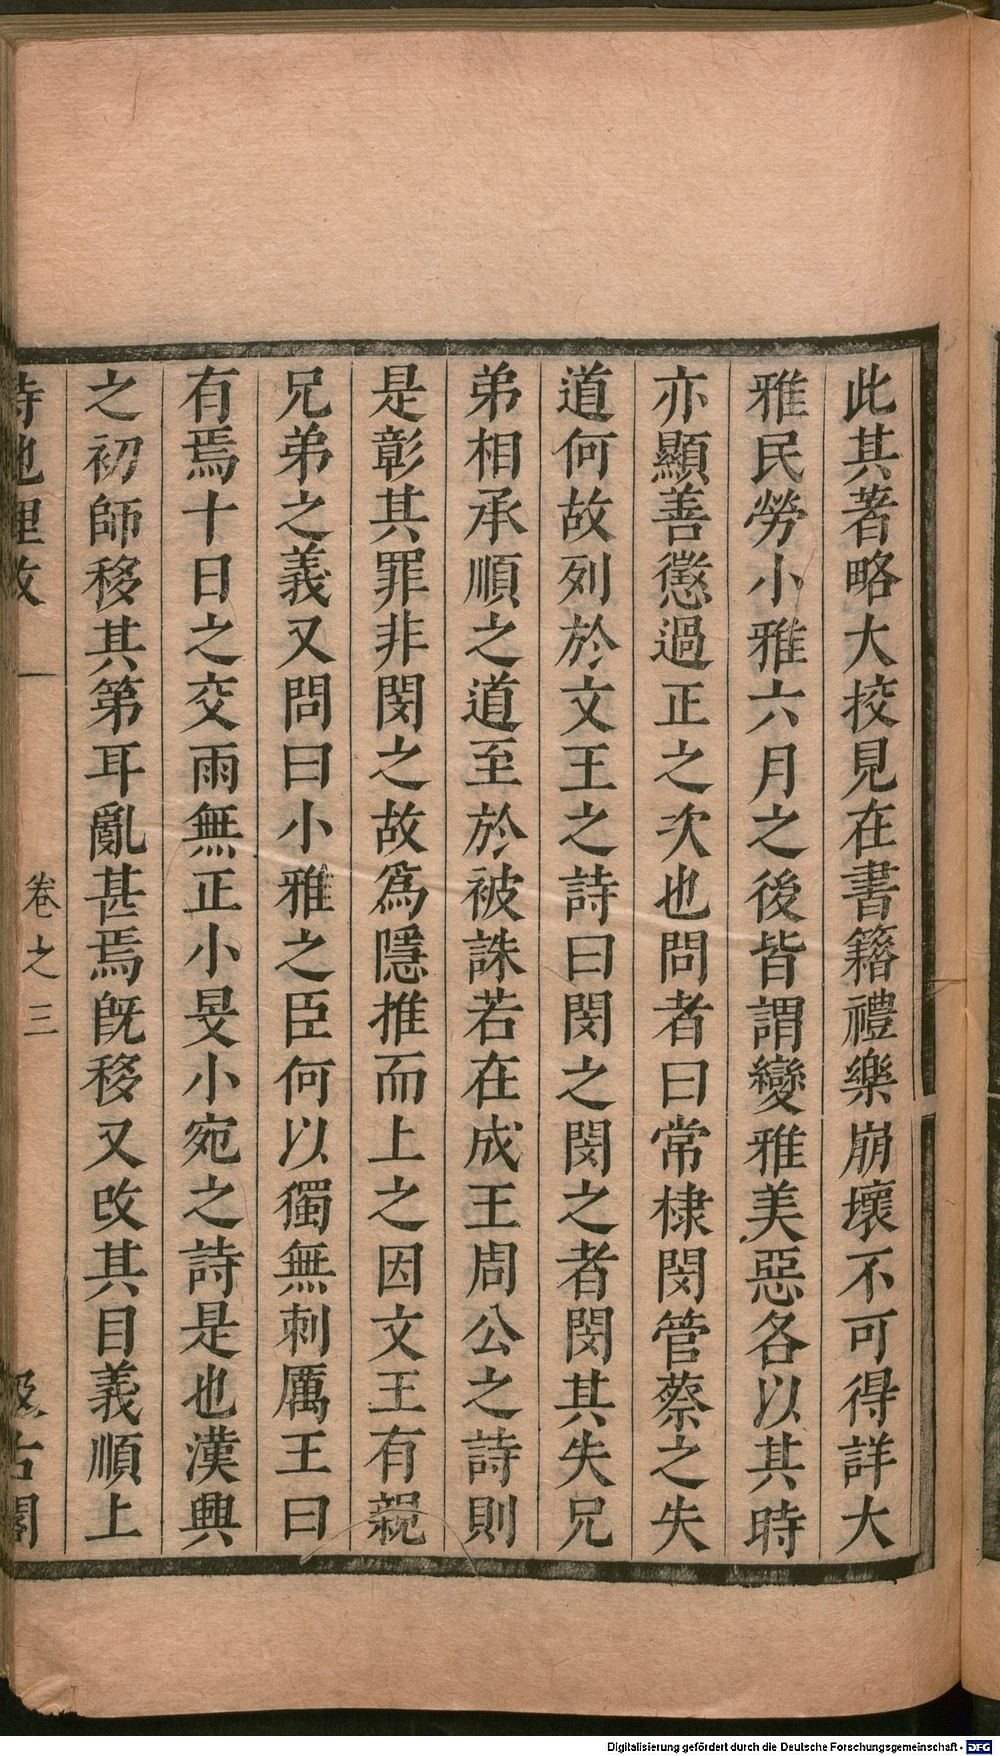 此其著略大挍見在書籍禮樂崩壞不可得詳大
雅民勞小雅六月之後皆謂變雅美惡各以其時
亦顯善懲過正之次也問者曰常棣閔管蔡之失
道何故列於文王之詩曰閔之閔之者閔其失兄
弟相承順之道至於被誅若在成王周公之詩則
是彰其罪非閔之故爲隱推而上之因文王有親
兄弟之義又問曰小雅之臣何以獨無刺厲王曰
有焉十日之交雨無正小旻小宛之詩是也漢興
之初師移其第耳亂甚焉旣移又改其目義順上
詩地理攷
卷之三
汲古閣
Digitalisierung gefördert durch die Deutsche Forschungsgemeinschaft - DFG